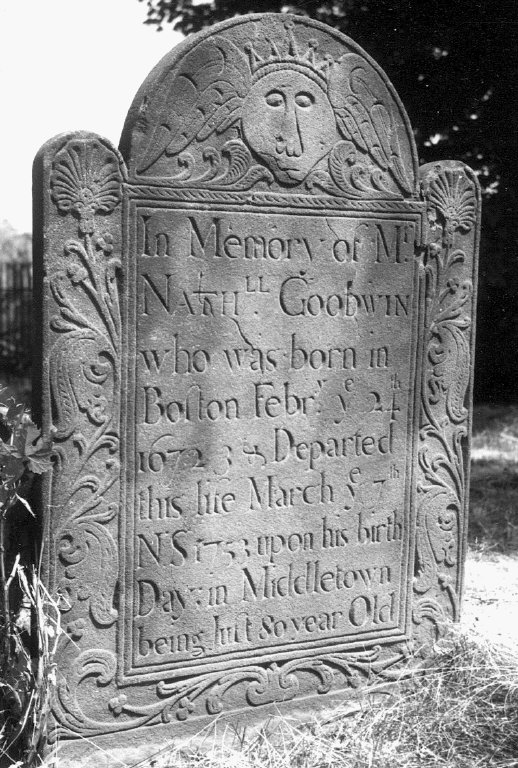 In Memory of Mr
Nathll. Goodwin
who was born in
Boſton Febry. ye 24th
1672 3 & Departed
this life March ye 7th
N S 1753 upon his birth
Day: in Middletown
being Juſt 80 year Old